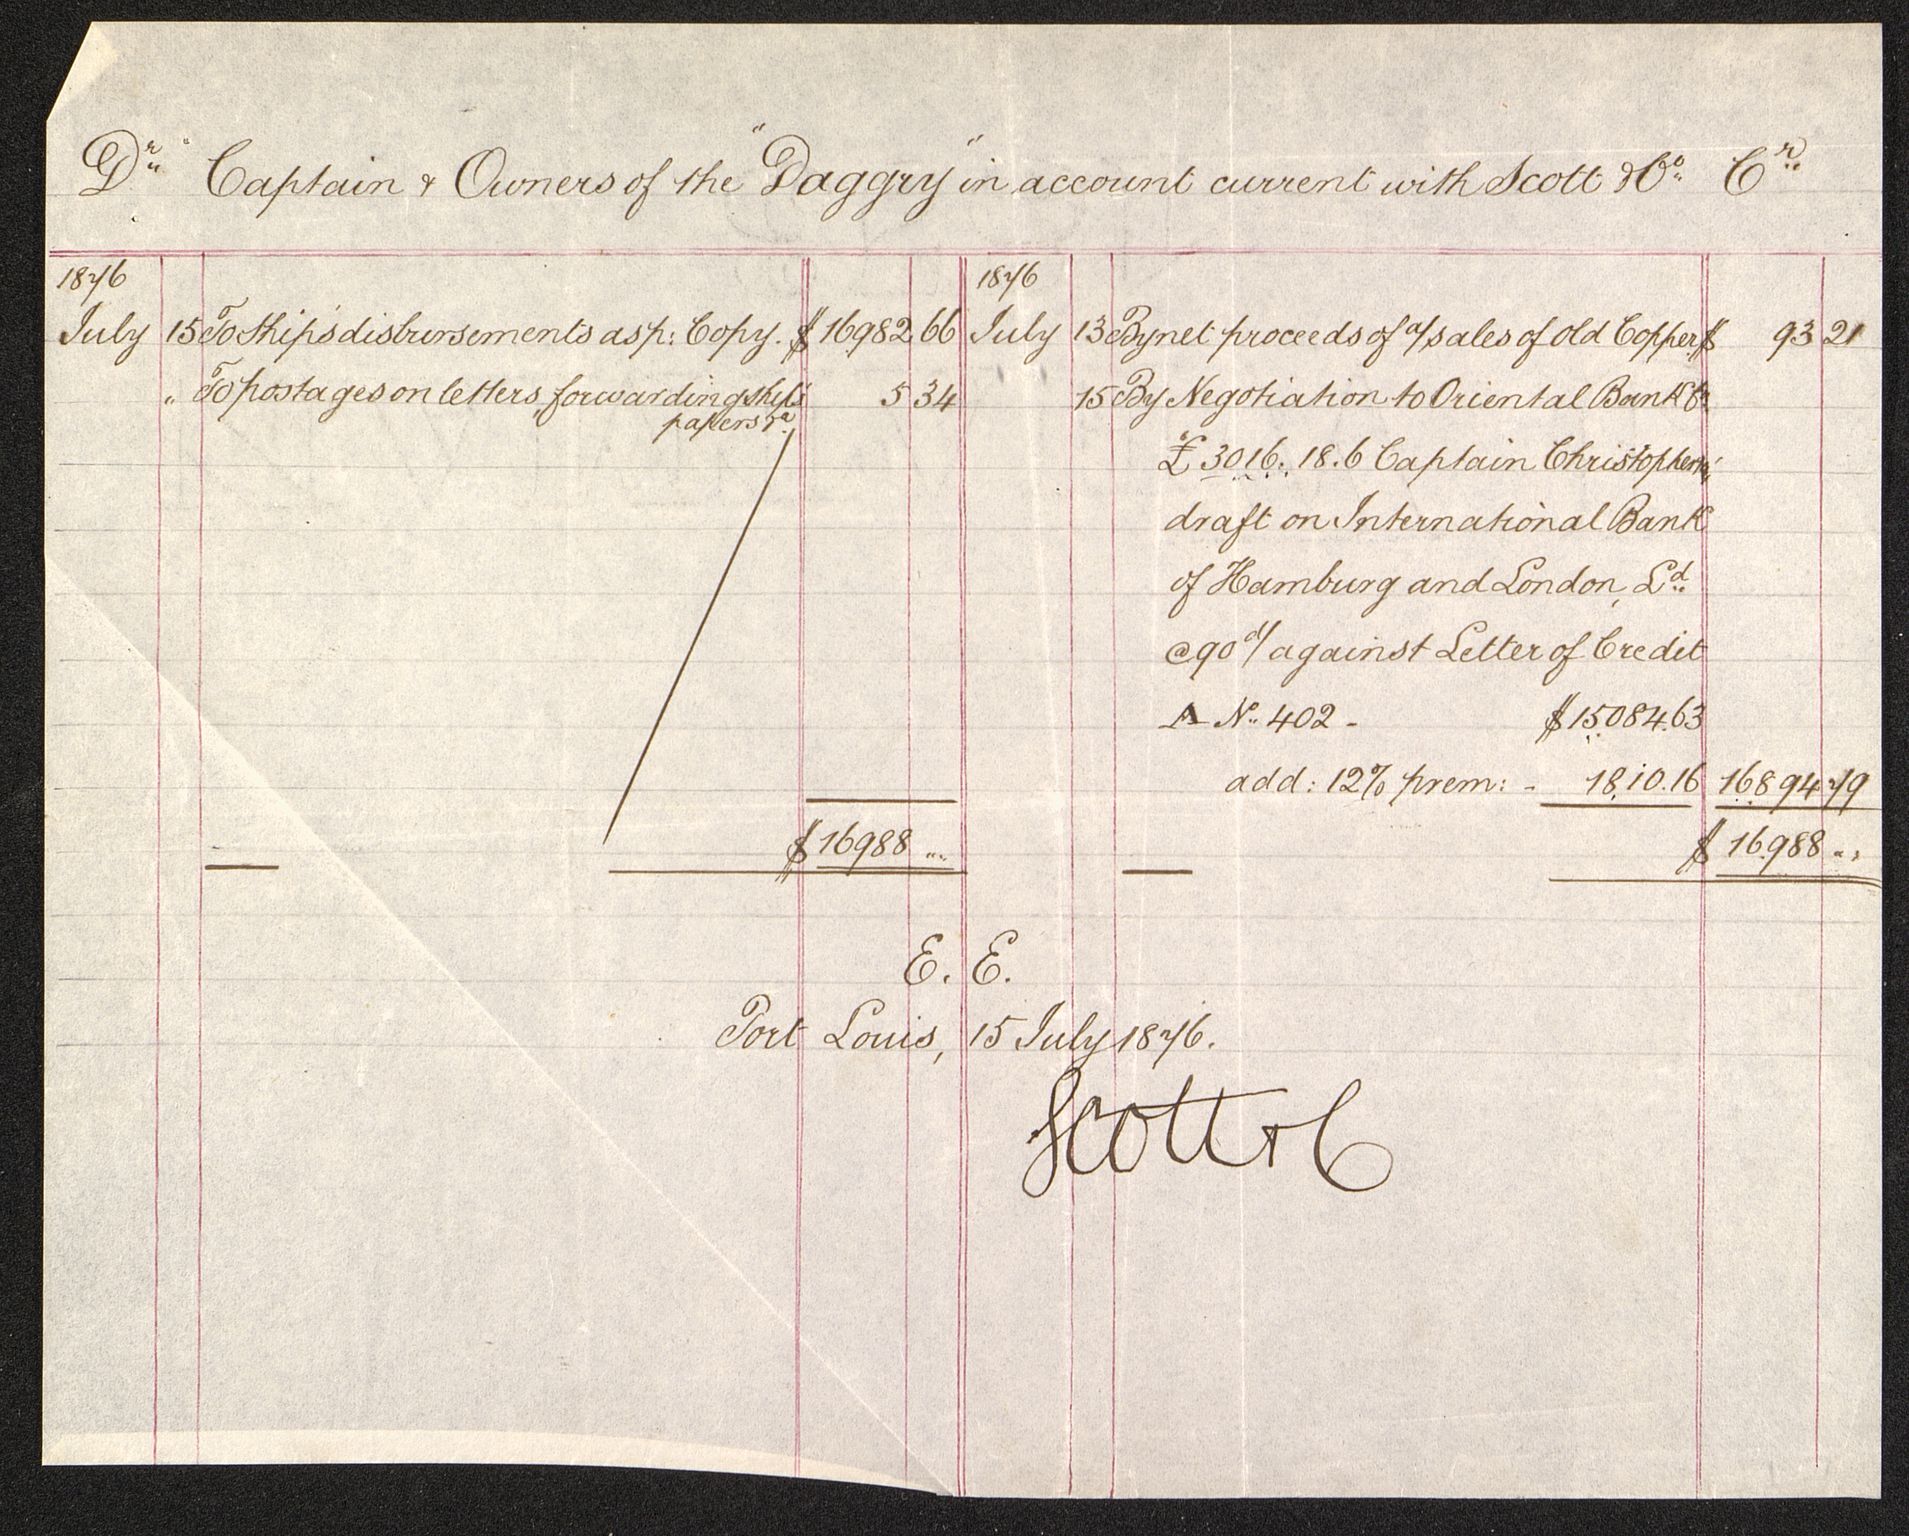 Dr Captain & Owners of the "Daggry" in account current with Scott & Co. Cr
1876
July 15 To Ship's disbursements as p: Copy. $ 16982 66
" To postages on letters, forwarding ship's 5 34
papers &a
$ 16988 ""
1876
July 13 By net proceeds of a/sales of old Copper $ 93 21
15 By Negotiation to Oriental Bank Co
£ 3016. 18. 6 Captain
draft on International Bank
of Hamburg and London, Ld.
@ 90 d/ against Letter of Credit
A No. 402 - $ 15084.63
add: 12% prem: - 1810.16 16894 79
$ 16988 ""
E. E.
Port Louis, 15 July 1876.
Scott & C